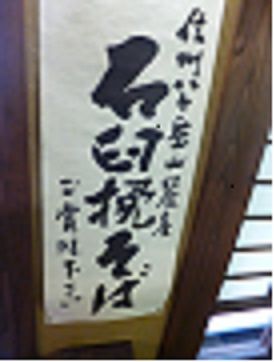 信州八ヶ岳山麓産
石臼挽そば
ご賞味下さい